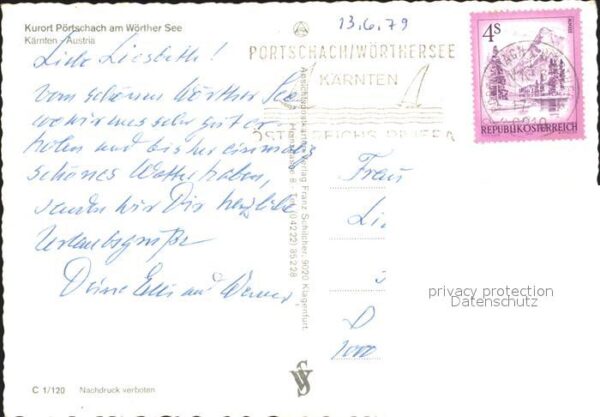 Kurort Pörtschach am Wörther See
Kärnten / Austria
Liebe Liesbeth!
Vom schönen Wörther See,
wo wir uns sehr gut er-
holen und bisher einmalig
schönes Wetter haben,
senden wir Dir herzliche
Urlaubsgrüße
Deine Elli und Werner
C 1/120 Nachdruck verboten
Ansichtskartenverlag Franz Schilcher, 9020 Klagenfurt
8 - Tel. (0 42 22) 85 2 28
13.6.79
PÖRTSCHACH/WÖRTHERSEE
KÄRNTEN
ÖSTERREICHS RIVIERA
4S
REPUBLIK ÖSTERREICH
Frau
Li
D
1000
privacy protection
Datenschutz